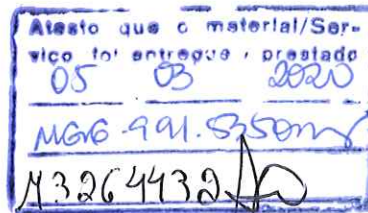 Atesto que o material/Ser-
viço foi entregue, prestado
05 03 2020
M3264432